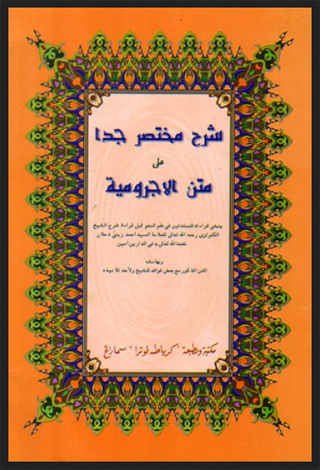 شرح مختصر جدا
على
متن الاجرومية
ينبغي قراءته للمبتدئين في علم النحو قبل قراءة شرح الشيخ
الكفراوي رحمه الله تعالى للعلامة السيد احمد زيني دحلان
نفعنا الله تعالى به في الدارين آمين
وبهامشه
المتن المذكور مع بعض فوائد للشيخ ولأحد تلاميذه
مكتبة ومطبعة "كرياطه فوترا" سماراغ